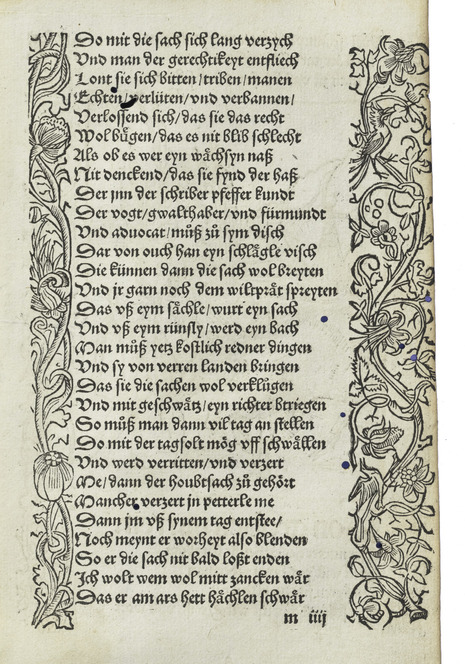 Do mit die sach sich lang verzych
Vnd man der gerechtikeyt entfliech
Lont sie sich bitten/triben/manen
Echten/verlüten/vnd verbannen/
Verlossend sich/das sie das recht
Wol bůgen/das es nit blib schlecht
Als ob es wer eyn wåchsyn naß
Nit denckend/das sie synd der haß
Der jnn der schriber pfeffer kundt
Der vogt/gwalthaber/vnd fürmundt
Vnd aduocat/můß zů sym disch
Dar von ouch han eyn schlågle visch
Die künnen dann die sach wol breyten
Vnd jr garn noch dem wiltpråt spreyten
Das vß eym såchle/wurt eyn sach
Vnd vß eym rünsly/werd eyn bach
Man můß yetz kostlich redner dingen
Vnd sy von verren landen bringen
Das sie die sachen wol verklůgen
Vnd mit geschwåtz/eyn richter btriegen
So můß man dann vil tag an stellen
Do mit der tagsolt mög vff schwållen
Vnd werd verritten/vnd verzert
Me/dann der houbtsach zů gehört
Mancher verzert jn petterle me
Dann jm vß synem tag entstee/
Noch meynt er worheyt also blenden
So er die sach nit bald loßt enden
Ich wolt wem wol mitt zancken wår
Das er am ars hett håchlen schwår
m iiij